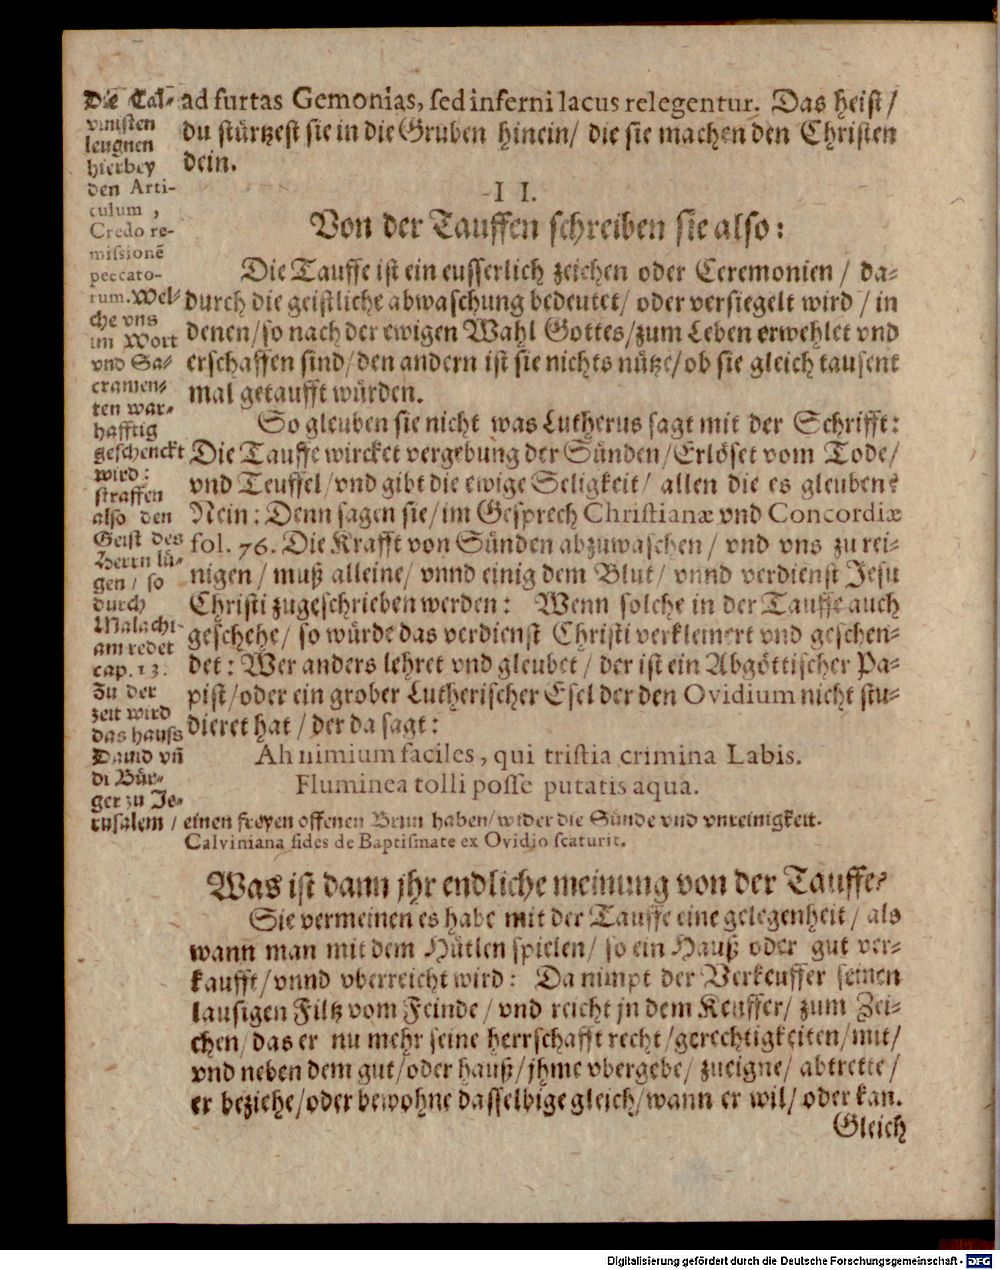 ad furtas Gemonias, sed inferni lacus relegentur. Das heist/
du stürtzest sie in die Gruben hinein/ die sie machen den Christen
dein.
I I.
Von der Tauffen schreiben sie also:
Die Tauffe ist ein eusserlich zeichen oder Ceremonien / da-
durch die geistliche abwaschung bedeutet/ oder versiegelt wird / in
denen/ so nach der ewigen Wahl Gottes/ zum Leben erwehlet vnd
erschaffen sind/ den andern ist sie nichts nütze/ ob sie gleich tausent
mal getaufft würden.
So gleuben sie nicht was Lutherus sagt mit der Schrifft:
Die Tauffe wircket vergebung der Sünden/ Erlöset vom Tode/
vnd Teuffel/ vnd gibt die ewige Seligkeit/ allen die es gleuben?
Nein: Denn sagen sie/ im Gesprech Christianæ vnd Concordiæ
fol. 76. Die Krafft von Sünden abzuwaschen / vnd vns zu rei-
nigen / muß alleine/ vnnd einig dem Blut/ vnnd verdienst Jesu
Christi zugeschrieben werden: Wenn solche in der Tauffe auch
geschehe/ so würde das verdienst Christi verkleinert vnd geschen-
det: Wer anders lehret vnd gleubet/ der ist ein Abgöttischer Pa-
pist/ oder ein grober Lutherischer Esel der den Ovidium nicht stu-
dieret hat / der da sagt:
Ah nimium faciles, qui tristia crimina Labis.
Fluminea tolli posse putatis aqua.
Die Cal-
vinisten
leugnen
hierbey
den Arti-
culum ,
Credo re-
missionẽ
peccato-
rum. Wel-
che vns
im Wort
vnd Sa-
cramen-
ten war-
hafftig
geschenckt
wird:
straffen
also den
Geist des
Herrn lü-
gen / so
durch
Malachi-
am redet
cap. 13.
Zu der
zeit wird
das hauss
Dauid vñ
di Bür-
ger zu Je-
rusalem / einen freyen offenen Brun haben/ wider die Sünde vnd vnreinigkeit.
Calviniana fides de Baptismate ex Ovidio scaturit.
Was ist dann jhr endliche meinung von der Tauffe?
Sie vermeinen es habe mit der Tauffe eine gelegenheit / als
wann man mit dem Hütlen spielen/ so ein Hauß oder gut ver-
kaufft/ vnnd vberreicht wird: Da nimpt der Verkeuffer seinen
lausigen Filtz vom Feinde / vnd reicht jn dem Keuffer/ zum Zei-
chen/ das er nu mehr seine herrschafft recht/ gerechtigkeiten/ mit/
vnd neben dem gut/ oder hauß/ jhme vbergebe/ zueigne/ abtrette/
er beziehe/ oder bewohne dasselbige gleich/ wann er wil/ oder kan.
Gleich
Digitalisierung gefördert durch die Deutsche Forschungsgemeinschaft - DFG